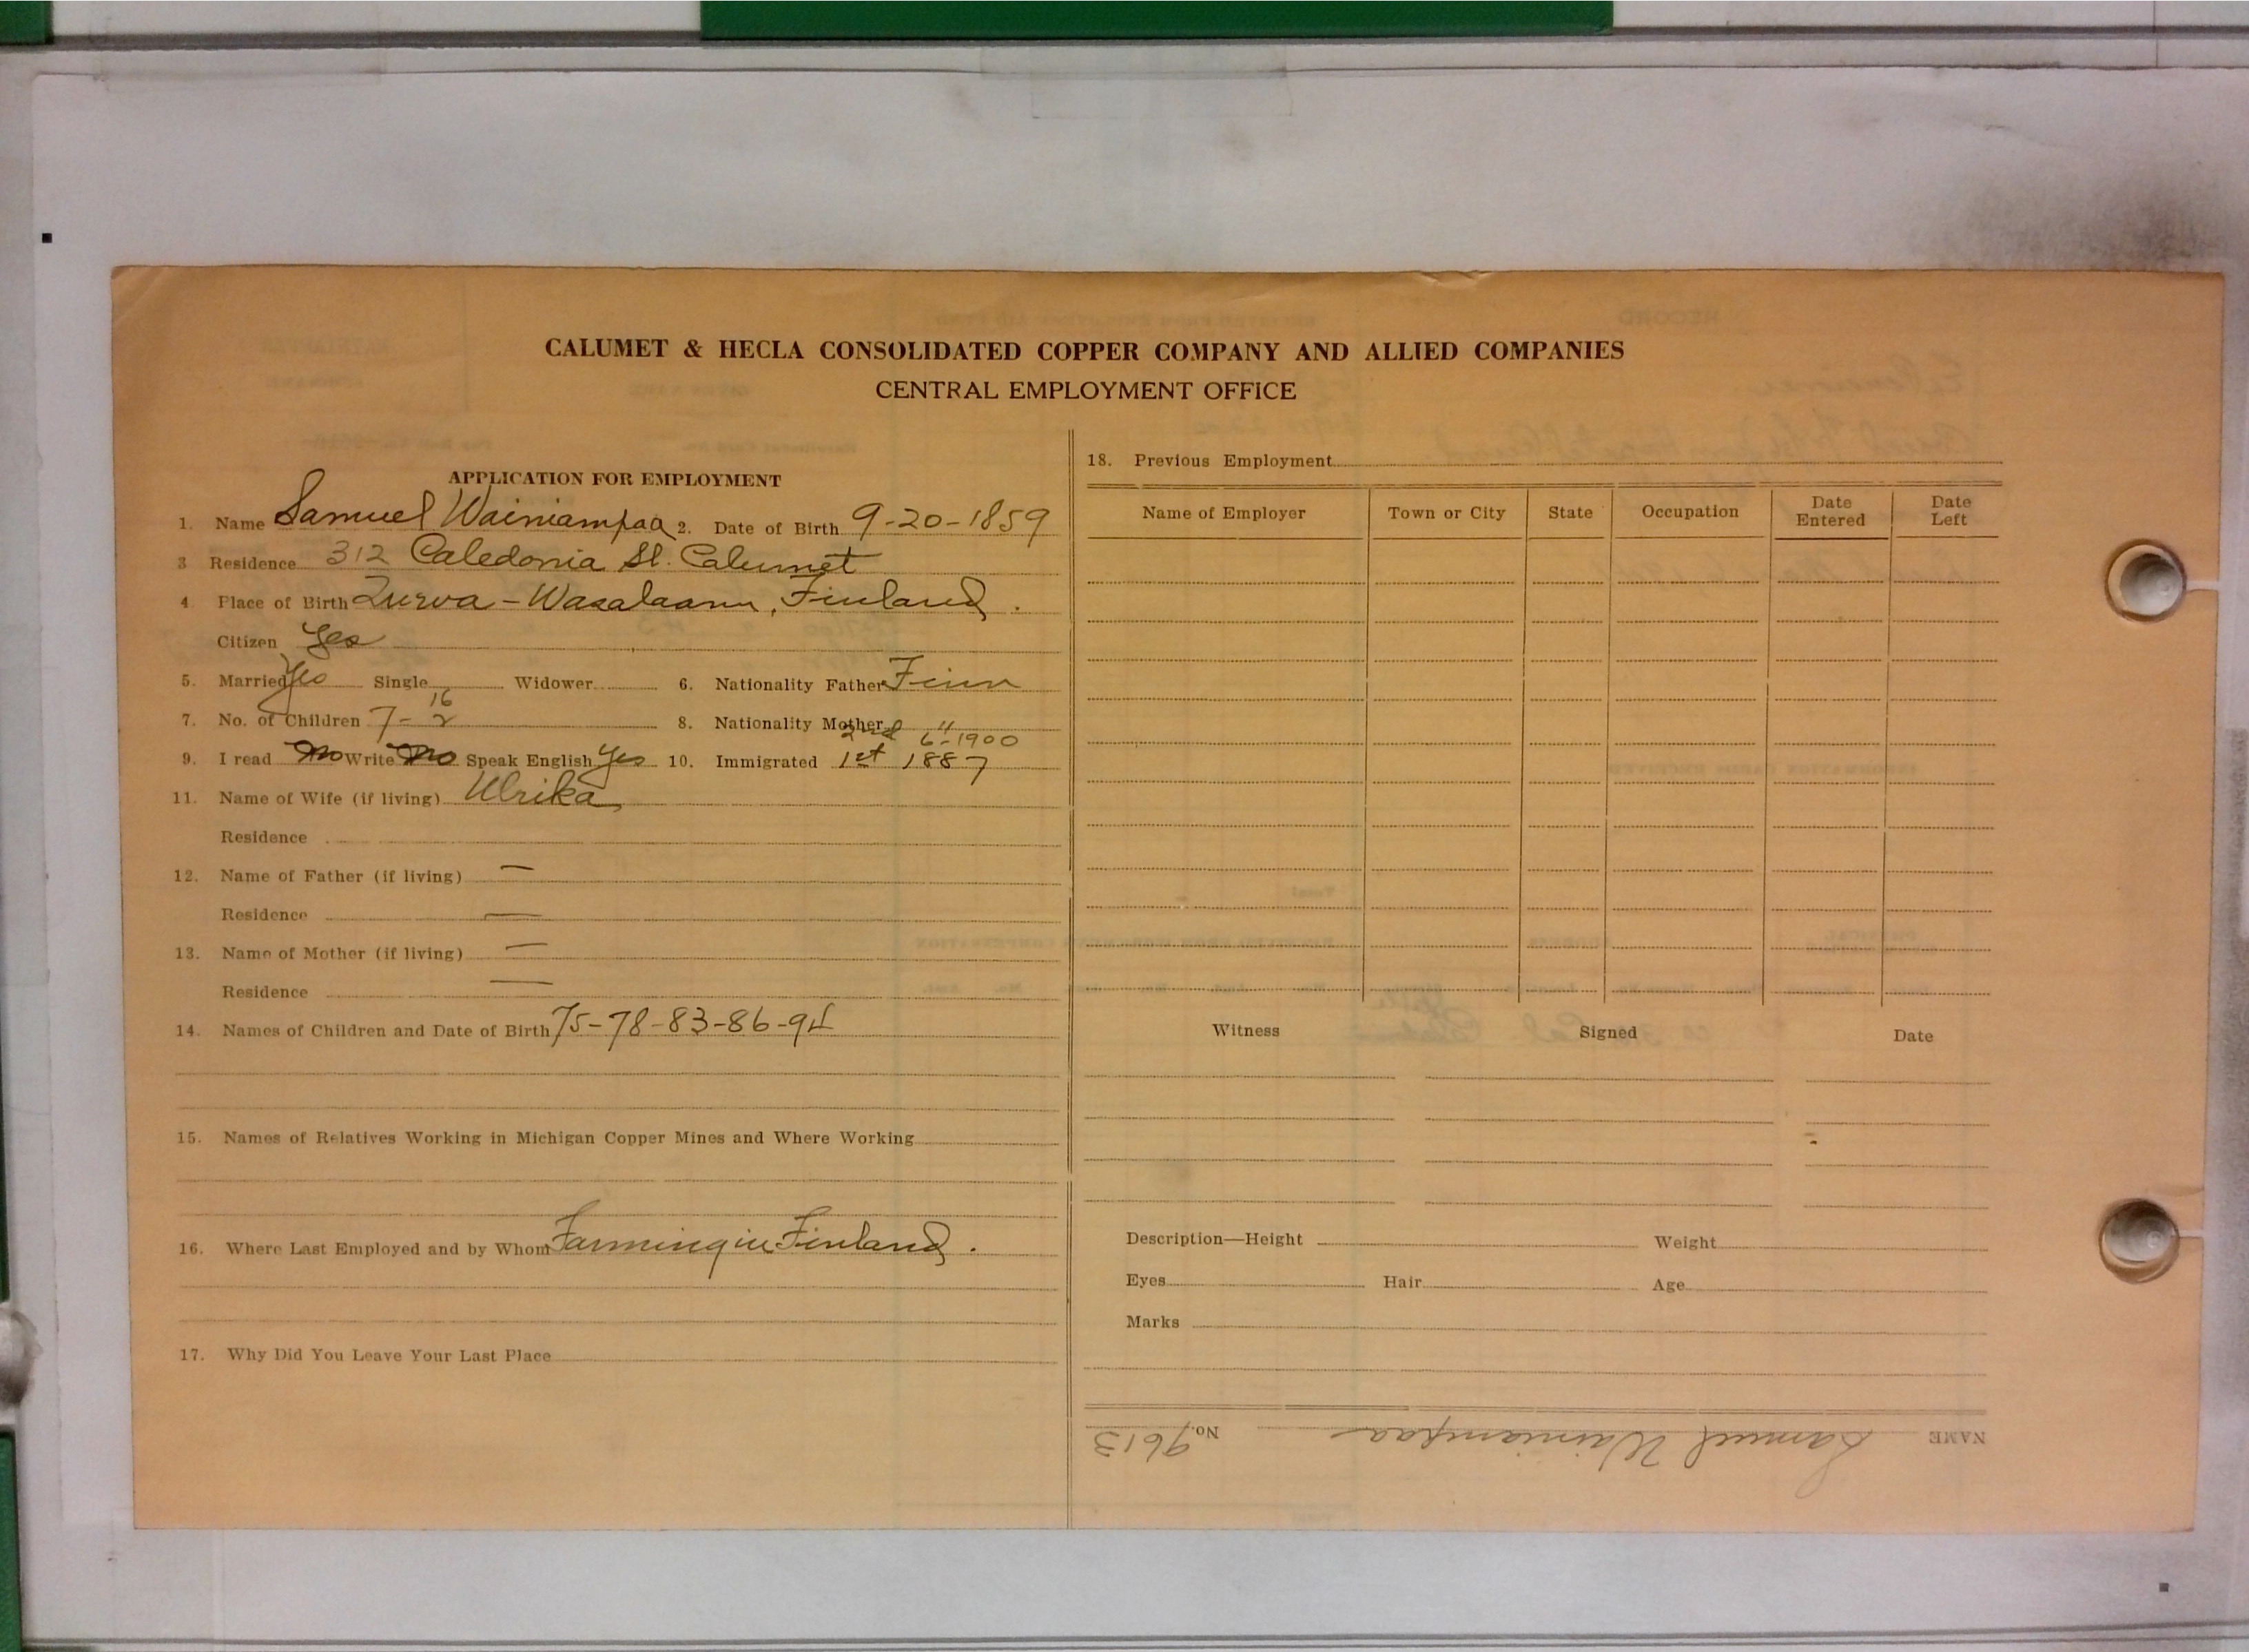 CALUMET & HECLA CONSOLIDATED COPPER COMPANY AND ALLIED COMPANIES
CENTRAL EMPLOYMENT OFFICE
APPLICATION FOR EMPLOYMENT
1. Name Samuel Wainiampaa 2. Date of Birth 9-20-1859
3 Residence 312 Caledonia St. Calumet
4. Place of Birth - Wasalaann, Finland.
Citizen Yes
5. Married Yes Single Widower 6. Nationality Father Finn
7. No. of Children 7 - 16 2 8. Nationality Mother "
2nd 6-1900
9. I read No Write No Speak English Yes 10. Immigrated 1st 1887
11. Name of Wife (if living) Ulrika
Residence
12. Name of Father (if living) —
Residence —
13. Name of Mother (if living) —
Residence —
14. Names of Children and Date of Birth 75-78-83-86-94
15. Names of Relatives Working in Michigan Copper Mines and Where Working
16. Where Last Employed and by Whom Farming in Finland.
17. Why Did You Leave Your Last Place
18. Previous Employment
Name of Employer Town or City State Occupation Date Entered Date Left
Witness Signed Date
Description—Height Weight
Eyes Hair Age
Marks
NAME Samuel Wainiampaa No. 9613